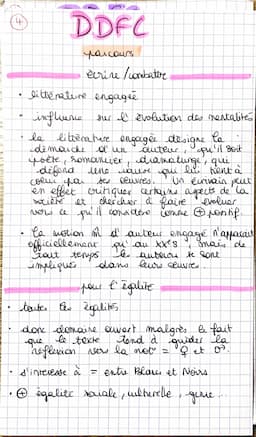 4
DDFC
parcours
écrire / combattre
• littérature engagée
• influence sur l'évolution des mentalités
• la littérature engagée désigne la
démarche d'un auteur, qu'il soit
poète, romancier, dramaturge, qui
défend une cause qui lui tient à
coeur par ses oeuvres. Un écrivain peut
en effet critiquer certains aspects de la
société et chercher à faire évoluer
vers ce qu'il considère comme ⊕ positif.
• La notion m̂ d'auteur engagé n'apparait
officiellement qu'au XXe s, mais de
tout temps les auteurs se sont
impliqués dans leurs oeuvres.
pour l'égalité
• toutes les égalités
• donc domaine ouvert malgrès le fait
que le texte tend à guider la
réflexion vers la not° = ♀ et ♂.
• s'interesse à = entre Blancs et Noirs
• ⊕ égalité sociale, culturelle, genre...